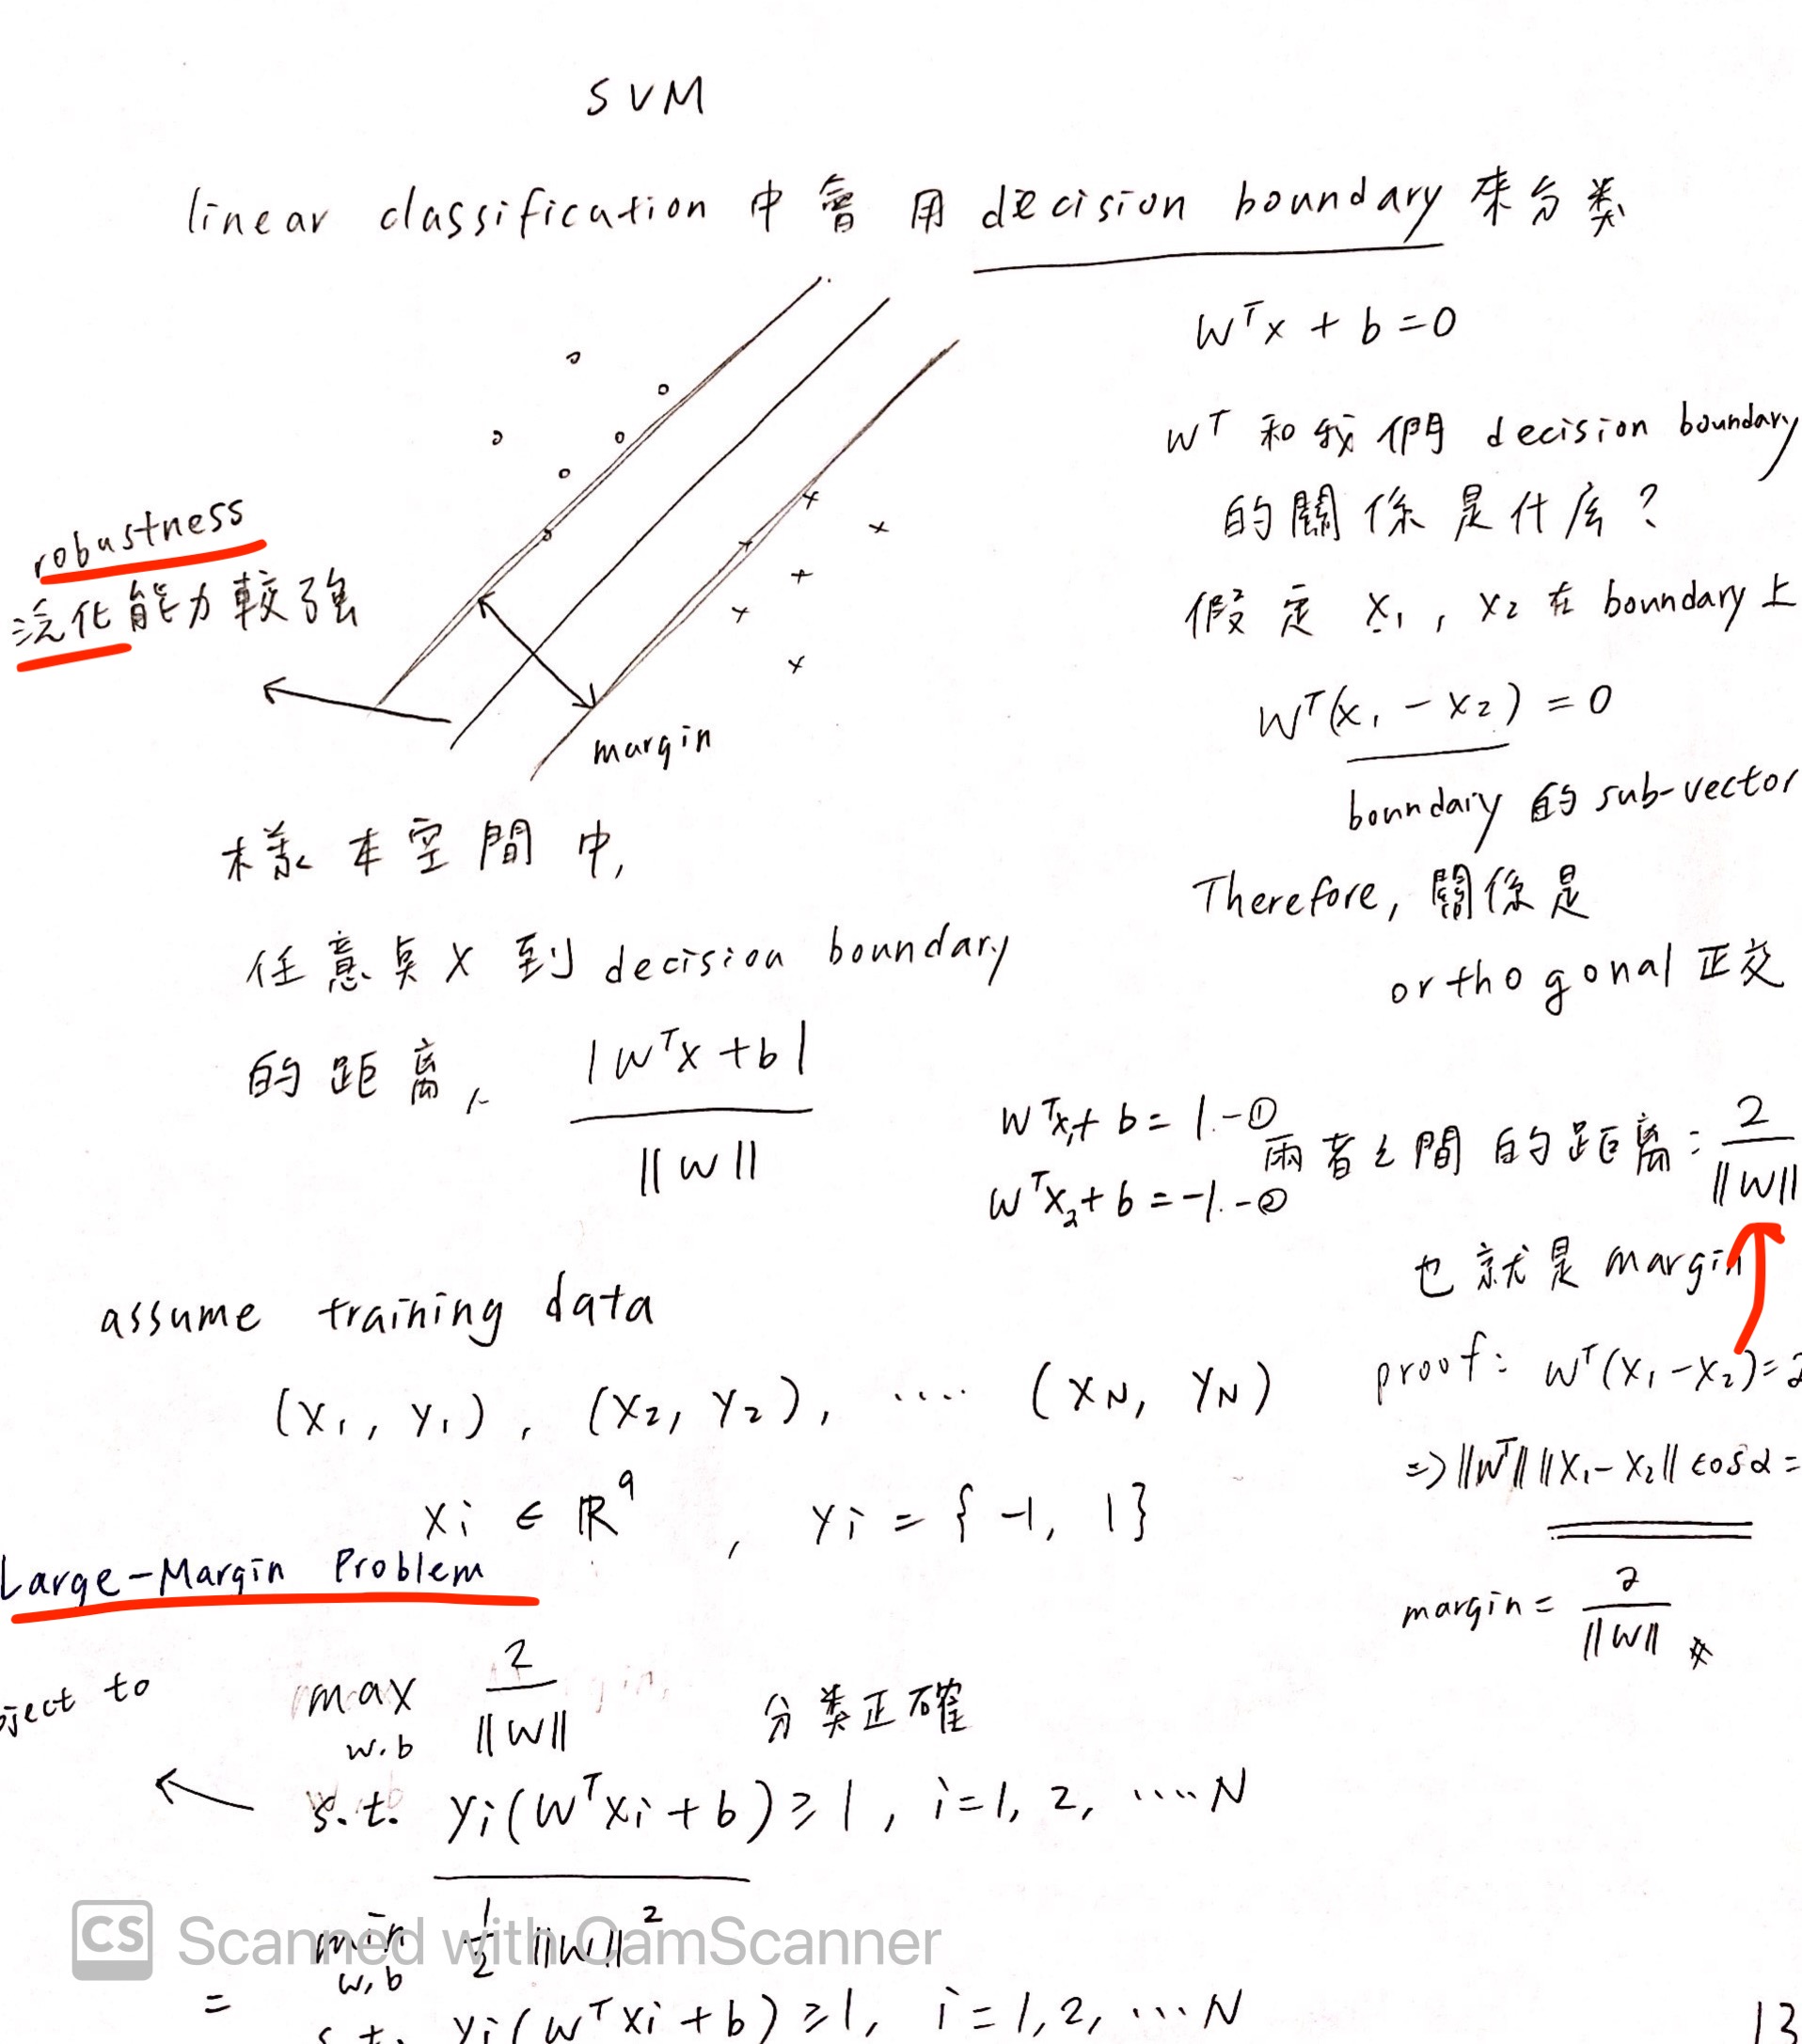 SVM
linear classification 中會用 decision boundary 來分类
Wᵀx + b = 0
Wᵀ 和我們 decision boundary
的關係是什麼?
假定 x₁, x₂ 在 boundary 上
Wᵀ(x₁ - x₂) = 0
boundary 的 sub-vector
Therefore, 關係是
orthogonal 正交
robustness
泛化能力較強
margin
樣本空間中,
任意点 x 到 decision boundary
的距离, |Wᵀx + b| / ||W||
Wᵀx₁ + b = 1 - ①
Wᵀx₂ + b = -1 - ②
兩者之間的距离: 2 / ||W||
也就是 margin
proof: Wᵀ(x₁ - x₂) = 2
=> ||Wᵀ|| ||x₁ - x₂|| cosα =
margin = 2 / ||W|| #
assume training data
(x₁, y₁), (x₂, y₂), .... (xN, yN)
xi ∈ ℝ^q, yi = {-1, 1}
Large-Margin Problem
ject to
max w.b 2 / ||W|| 分类正確
s.t. yi(Wᵀxi + b) ≥ 1, i = 1, 2, .... N
= min w,b 1/2 ||W||²
s.t. yi(Wᵀxi + b) ≥ 1, i = 1, 2, ... N
13
CS Scanned with CamScanner